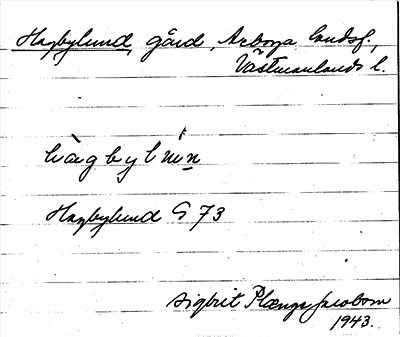 Hagbylund, gård, Arboga landsf.,
Västmanlands l.
hàgbylún
Hagbylund G 73
Sigbrit Plænge Jacobson
1943.